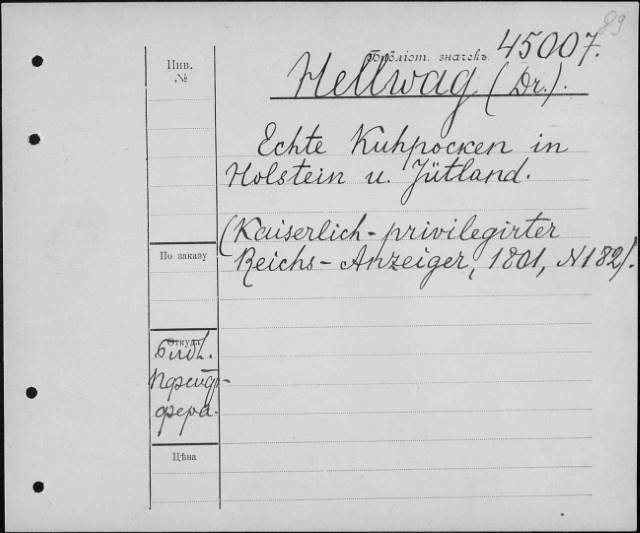 89
Инв.
№
Бібліот. значекъ.
45007.
Hellwag (Dr.).
Echte Kuhpocken in
Holstein u. Jütland.
(Kaiserlich-privilegirter
Reichs-Anzeiger, 1801, N 182).
По заказу
Откуда
Библ.
Пфейф-
фера.
Цѣна